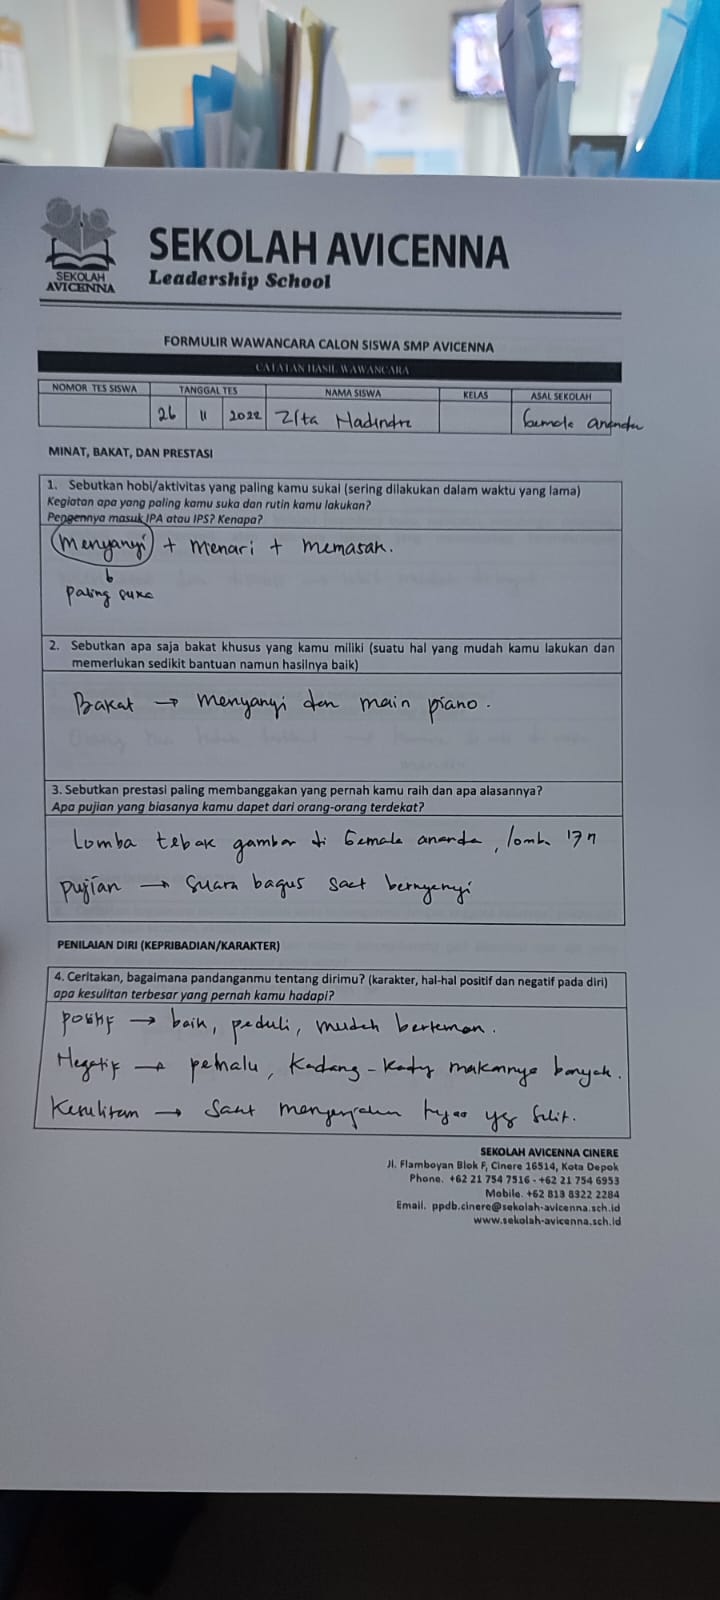 SEKOLAH AVICENNA
SEKOLAH AVICENNA
Leadership School
FORMULIR WAWANCARA CALON SISWA SMP AVICENNA
CATATAN HASIL WAWANCARA
NOMOR TES SISWA TANGGAL TES NAMA SISWA KELAS ASAL SEKOLAH
26 11 2022 Zita Nadindre Gemala ananda
MINAT, BAKAT, DAN PRESTASI
1. Sebutkan hobi/aktivitas yang paling kamu sukai (sering dilakukan dalam waktu yang lama)
Kegiatan apa yang paling kamu suka dan rutin kamu lakukan?
Pengennya masuk IPA atau IPS? Kenapa?
Menyanyi + Menari + Memasak.
paling suka
2. Sebutkan apa saja bakat khusus yang kamu miliki (suatu hal yang mudah kamu lakukan dan
memerlukan sedikit bantuan namun hasilnya baik)
Bakat → Menyanyi dan main piano.
3. Sebutkan prestasi paling membanggakan yang pernah kamu raih dan apa alasannya?
Apa pujian yang biasanya kamu dapet dari orang-orang terdekat?
Lomba tebak gambar di Gemala ananda, lomba 17n
pujian → Suara bagus saat bernyanyi
PENILAIAN DIRI (KEPRIBADIAN/KARAKTER)
4. Ceritakan, bagaimana pandanganmu tentang dirimu? (karakter, hal-hal positif dan negatif pada diri)
apa kesulitan terbesar yang pernah kamu hadapi?
Positif → baik, peduli, mudah berteman.
Negatif → pemalu, Kadang-Kadang makannya banyak.
Kesulitan → Saat mengerjakan tugas yg sulit.
SEKOLAH AVICENNA CINERE
Jl. Flamboyan Blok F, Cinere 16514, Kota Depok
Phone. +62 21 754 7516 - +62 21 754 6953
Mobile. +62 813 8322 2284
Email. ppdb.cinere@sekolah-avicenna.sch.id
www.sekolah-avicenna.sch.id